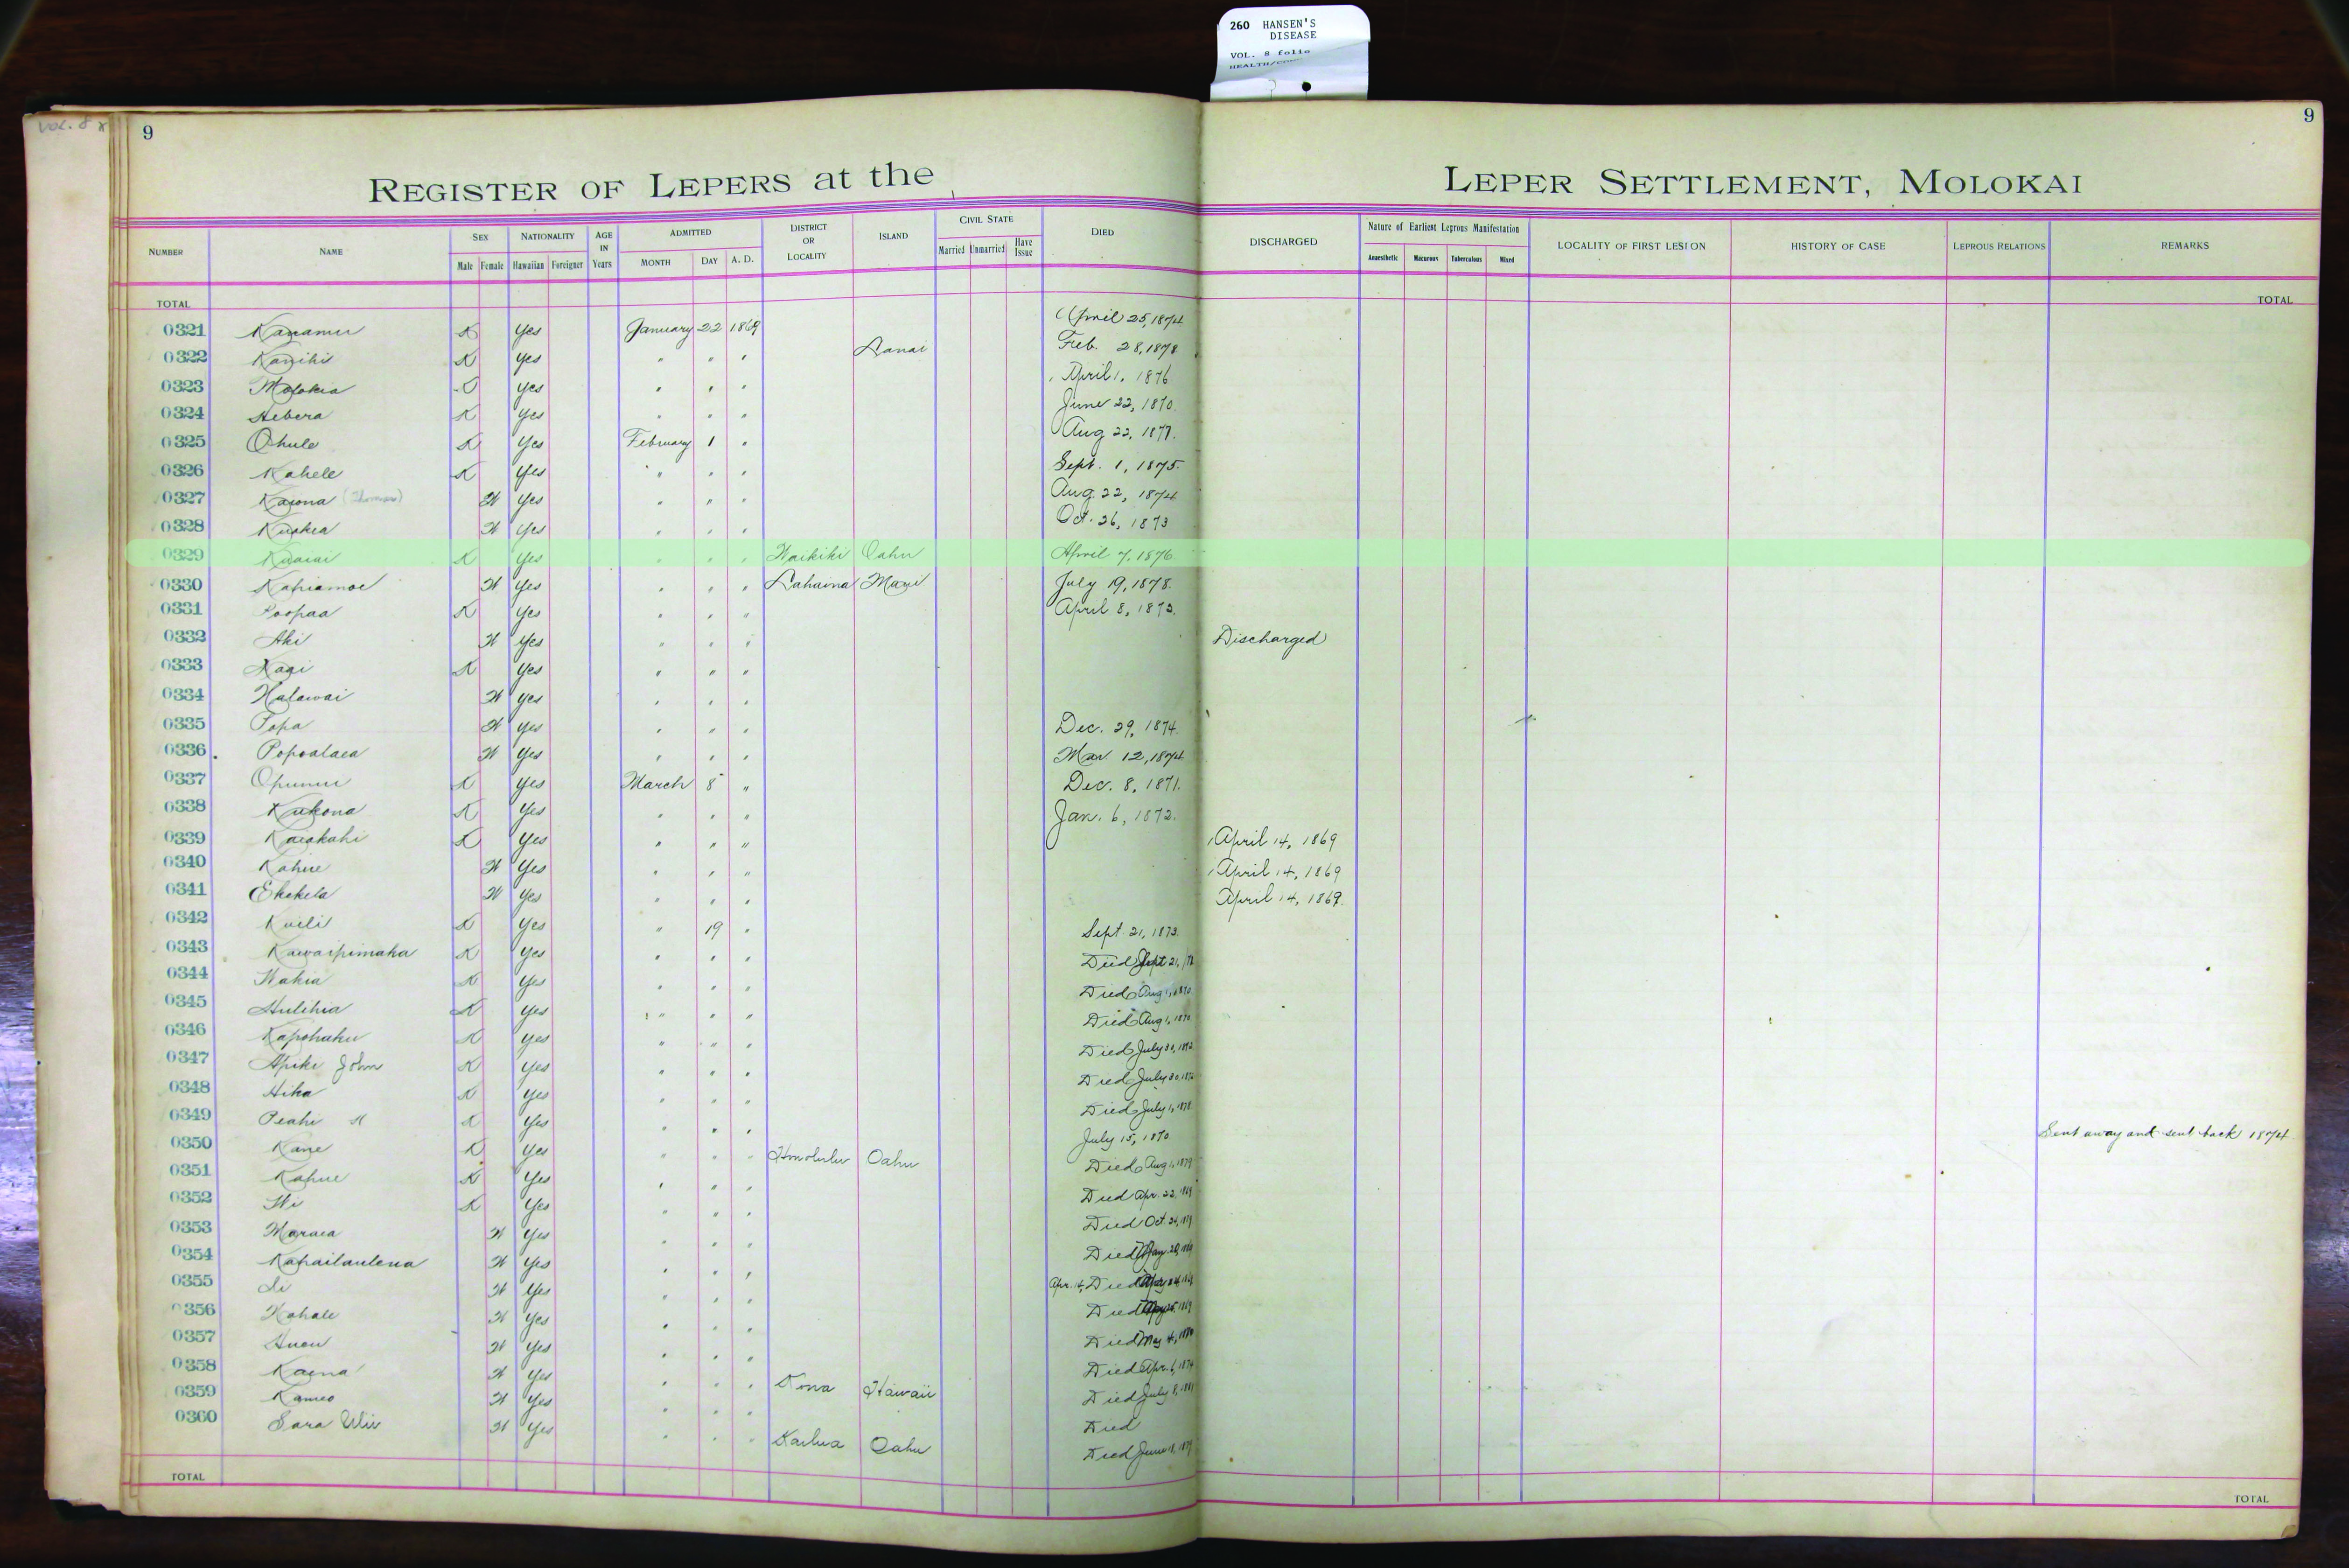 260 HANSEN'S
DISEASE
VOL. 8 folio
VOL. 8
9
9
REGISTER OF LEPERS at the LEPER SETTLEMENT, MOLOKAI
NUMBER NAME SEX Male Female NATIONALITY Hawaiian Foreigner AGE IN Years ADMITTED MONTH DAY A. D. DISTRICT OR LOCALITY ISLAND CIVIL STATE Married Unmarried Have Issue DIED DISCHARGED Nature of Earliest Leprous Manifestation Anaesthetic Macurous Tuberculous Mixed LOCALITY OF FIRST LESION HISTORY OF CASE LEPROUS RELATIONS REMARKS
TOTAL TOTAL
0321 Kanamu K Yes January 22 1869 April 25, 1874
0322 Kanihi K Yes " " " Lanai Feb. 28, 1878
0323 Molokia Yes " " " April 1, 1876
0324 Hebera K Yes " " " June 22, 1870
0325 Ohule K Yes February 1 " Aug 22, 1877.
0326 Kahele K Yes " " " Sept. 1, 1875
0327 Kaiona (Thomas) W Yes " " " Aug. 22, 1874
0328 W Yes " " " Oct. 26, 1873
0329 Kuaiai K Yes " " " Waikiki Oahu April 7, 1876
0330 Kahiamoe W Yes " " " Lahaina Maui July 19, 1878.
0331 Poopaa K Yes " " " April 8, 1873.
0332 Aki W Yes " " " Discharged
0333 K Yes " " "
0334 Halawai W Yes " " "
0335 Popa W Yes " " " Dec. 29, 1874
0336 Popoalaea W Yes " " " Mar 12, 1874
0337 Opunui K Yes March 8 " Dec. 8, 1871.
0338 Kukona K Yes " " " Jan. 6, 1872.
0339 Kaiakahi K Yes " " " April 14, 1869
0340 Kahue W Yes " " " April 14, 1869
0341 Ekekela W Yes " " " April 14, 1869.
0342 Kuili K Yes " 19 " Sept. 21, 1873.
0343 Kawaipimaka K Yes " " " Died Sept 21,
0344 Wakia K Yes " " " Died Aug 1, 1870
0345 Hulihia K Yes " " " Died Aug 1, 1870
0346 Kapohaku K Yes " " " Died July 30,
0347 Apiki John K Yes " " " Died July 30,
0348 Hika K Yes " " " Died July 1, 1878
0349 Peahi K Yes " " " July 15, 1870 Sent away and sent back 1874
0350 Kane K Yes " " " Honolulu Oahu Died Aug 1, 1879
0351 Kahue K Yes " " " Died Apr. 22, 1869
0352 K Yes " " " Died Oct.
0353 Maraea W Yes " " " Died
0354 Kahailaulena W Yes " " " Apr. 14, Died
0355 Li W Yes " " " Died
0356 Kahale W Yes " " " Died May 4,
0357 Auou W Yes " " " Died Apr. 6, 1874
0358 Kaena W Yes " " " Kona Hawaii Died July 8, 1881
0359 Kameo W Yes " " " Died
0360 Sara W Yes " " " Kailua Oahu Died June
TOTAL TOTAL